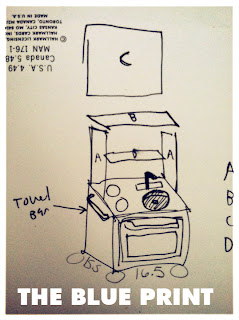 U.S.A. 4.49
Canada 5.48
MAN 176-1
© HALLMARK LICENSING,
HALLMARK CARDS, INC.
KANSAS CITY, MO
TORONTO, CANADA
MADE IN U.S.A.
C
B
A
B
A
Towel
Bar
16.5
A
B
C
D
THE BLUE PRINT